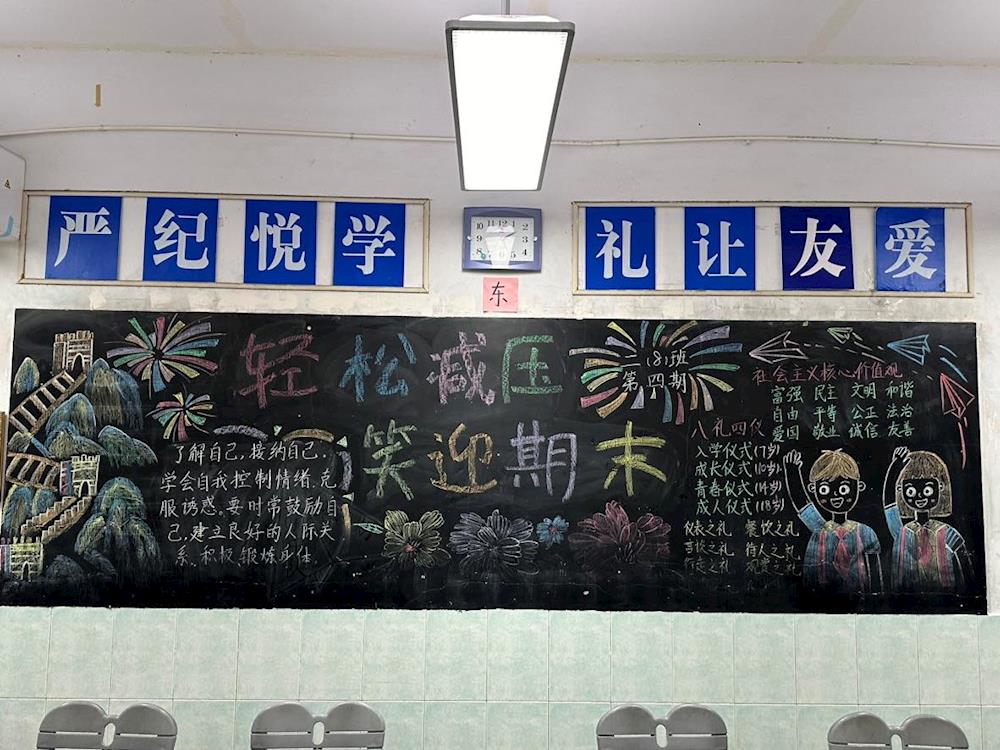 严纪悦学
礼让友爱
东
轻松减压
笑迎期末
181班
第四期
了解自己，接纳自己．
学会自我控制情绪．克
服诱惑。要时常鼓励自
己，建立良好的人际关
系．积极锻炼身体．
社会主义核心价值观
富强 民主 文明 和谐
自由 平等 公正 法治
爱国 敬业 诚信 友善
八礼四仪
入学仪式(7岁)
成长仪式(10岁)
青春仪式(14岁)
成人仪式(18岁)
仪表之礼 餐饮之礼
言谈之礼 待人之礼
行走之礼 观赏之礼